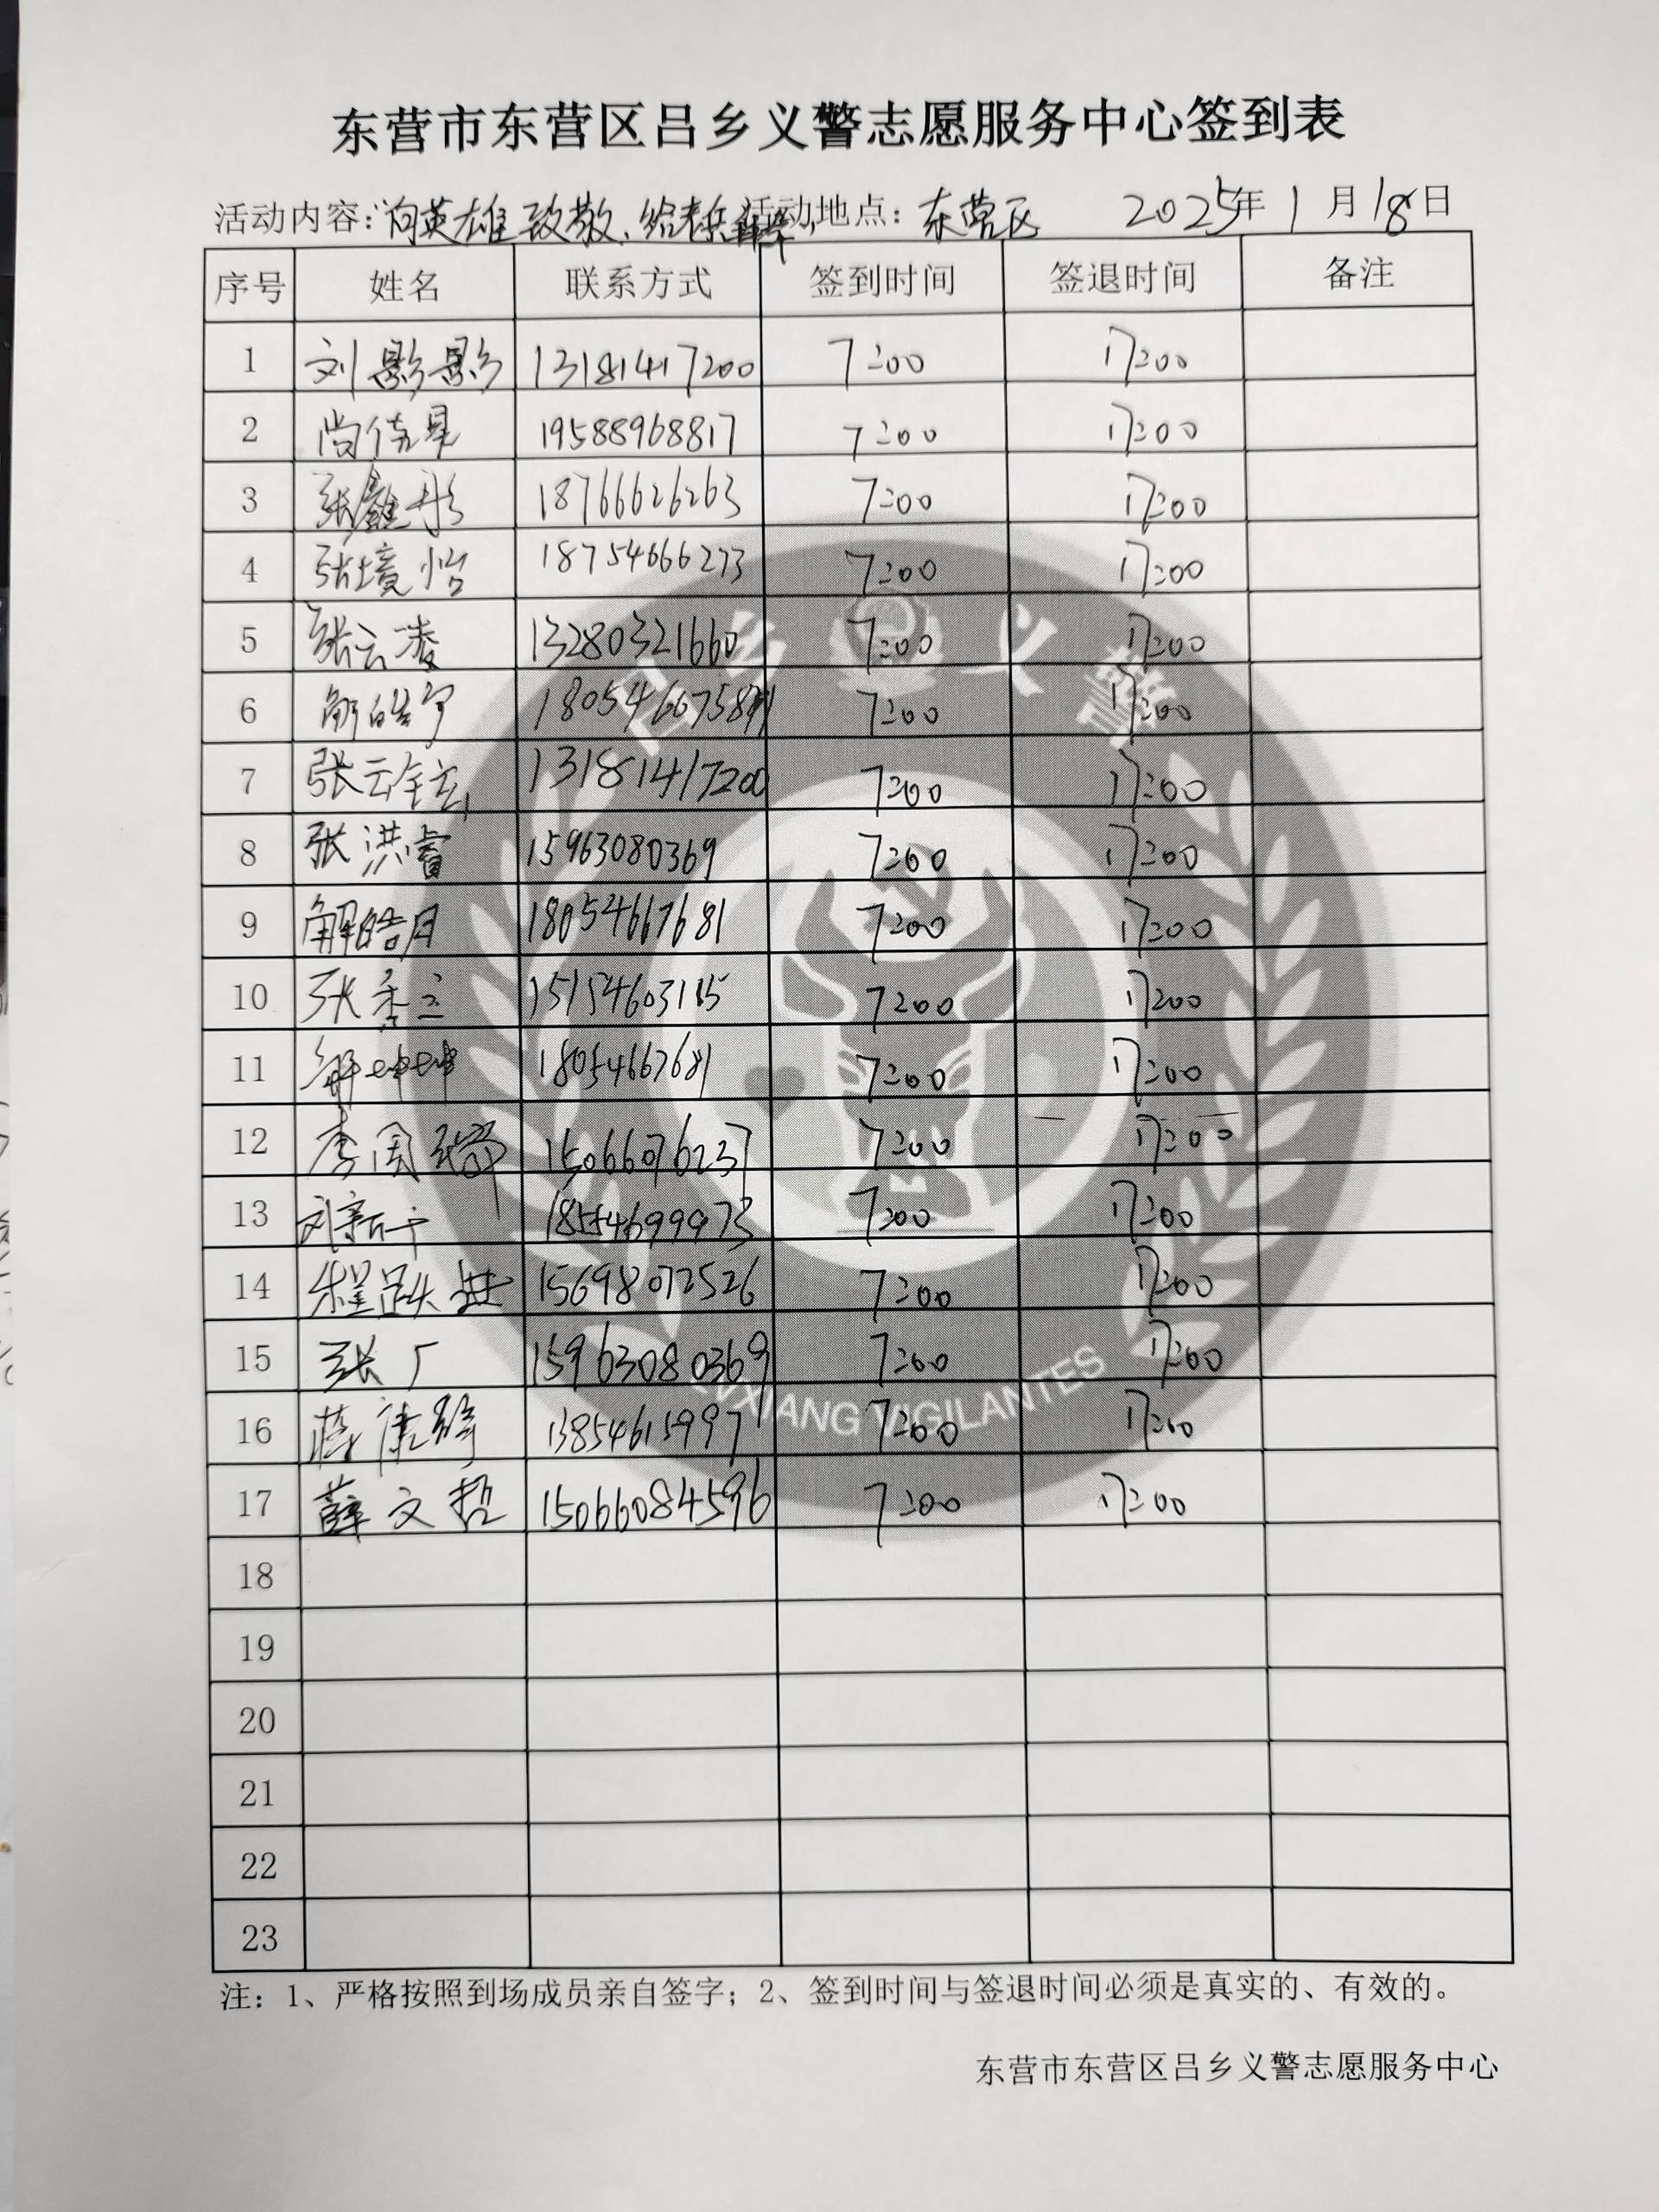 东营市东营区吕乡义警志愿服务中心签到表
活动内容：“向英雄致敬、给老兵 活动地点：东营区 2025年1月18日
序号 姓名 联系方式 签到时间 签退时间 备注
1 刘影影 13181417200 7:00 17:00
2 尚倚早 19588968817 7:00 17:00
3 张鑫彤 18766626263 7:00 17:00
4 张境怡 18754666273 7:00 17:00
5 张云凌 13280321660 7:00 17:00
6 解皓宁 7:00 17:00
7 张云 13181417200 7:00 17:00
8 张洪睿 15963080369 7:00 17:00
9 解皓月 18054667681 7:00 17:00
10 张 15154603115 7:00 17:00
11 解坤坤 18054667681 7:00 17:00
12 李国 15066076237 7:00 17:00
13 刘 18554699973 7:00 17:00
14 程跃进 15698072526 7:00 17:00
15 张广 15963080369 7:00 17:00
16 蒋康 13854615997 7:00 17:00
17 薛文哲 15066084596 7:00 17:00
18
19
20
21
22
23
吕乡义警
LVXIANG VIGILANTES
注：1、严格按照到场成员亲自签字；2、签到时间与签退时间必须是真实的、有效的。
东营市东营区吕乡义警志愿服务中心